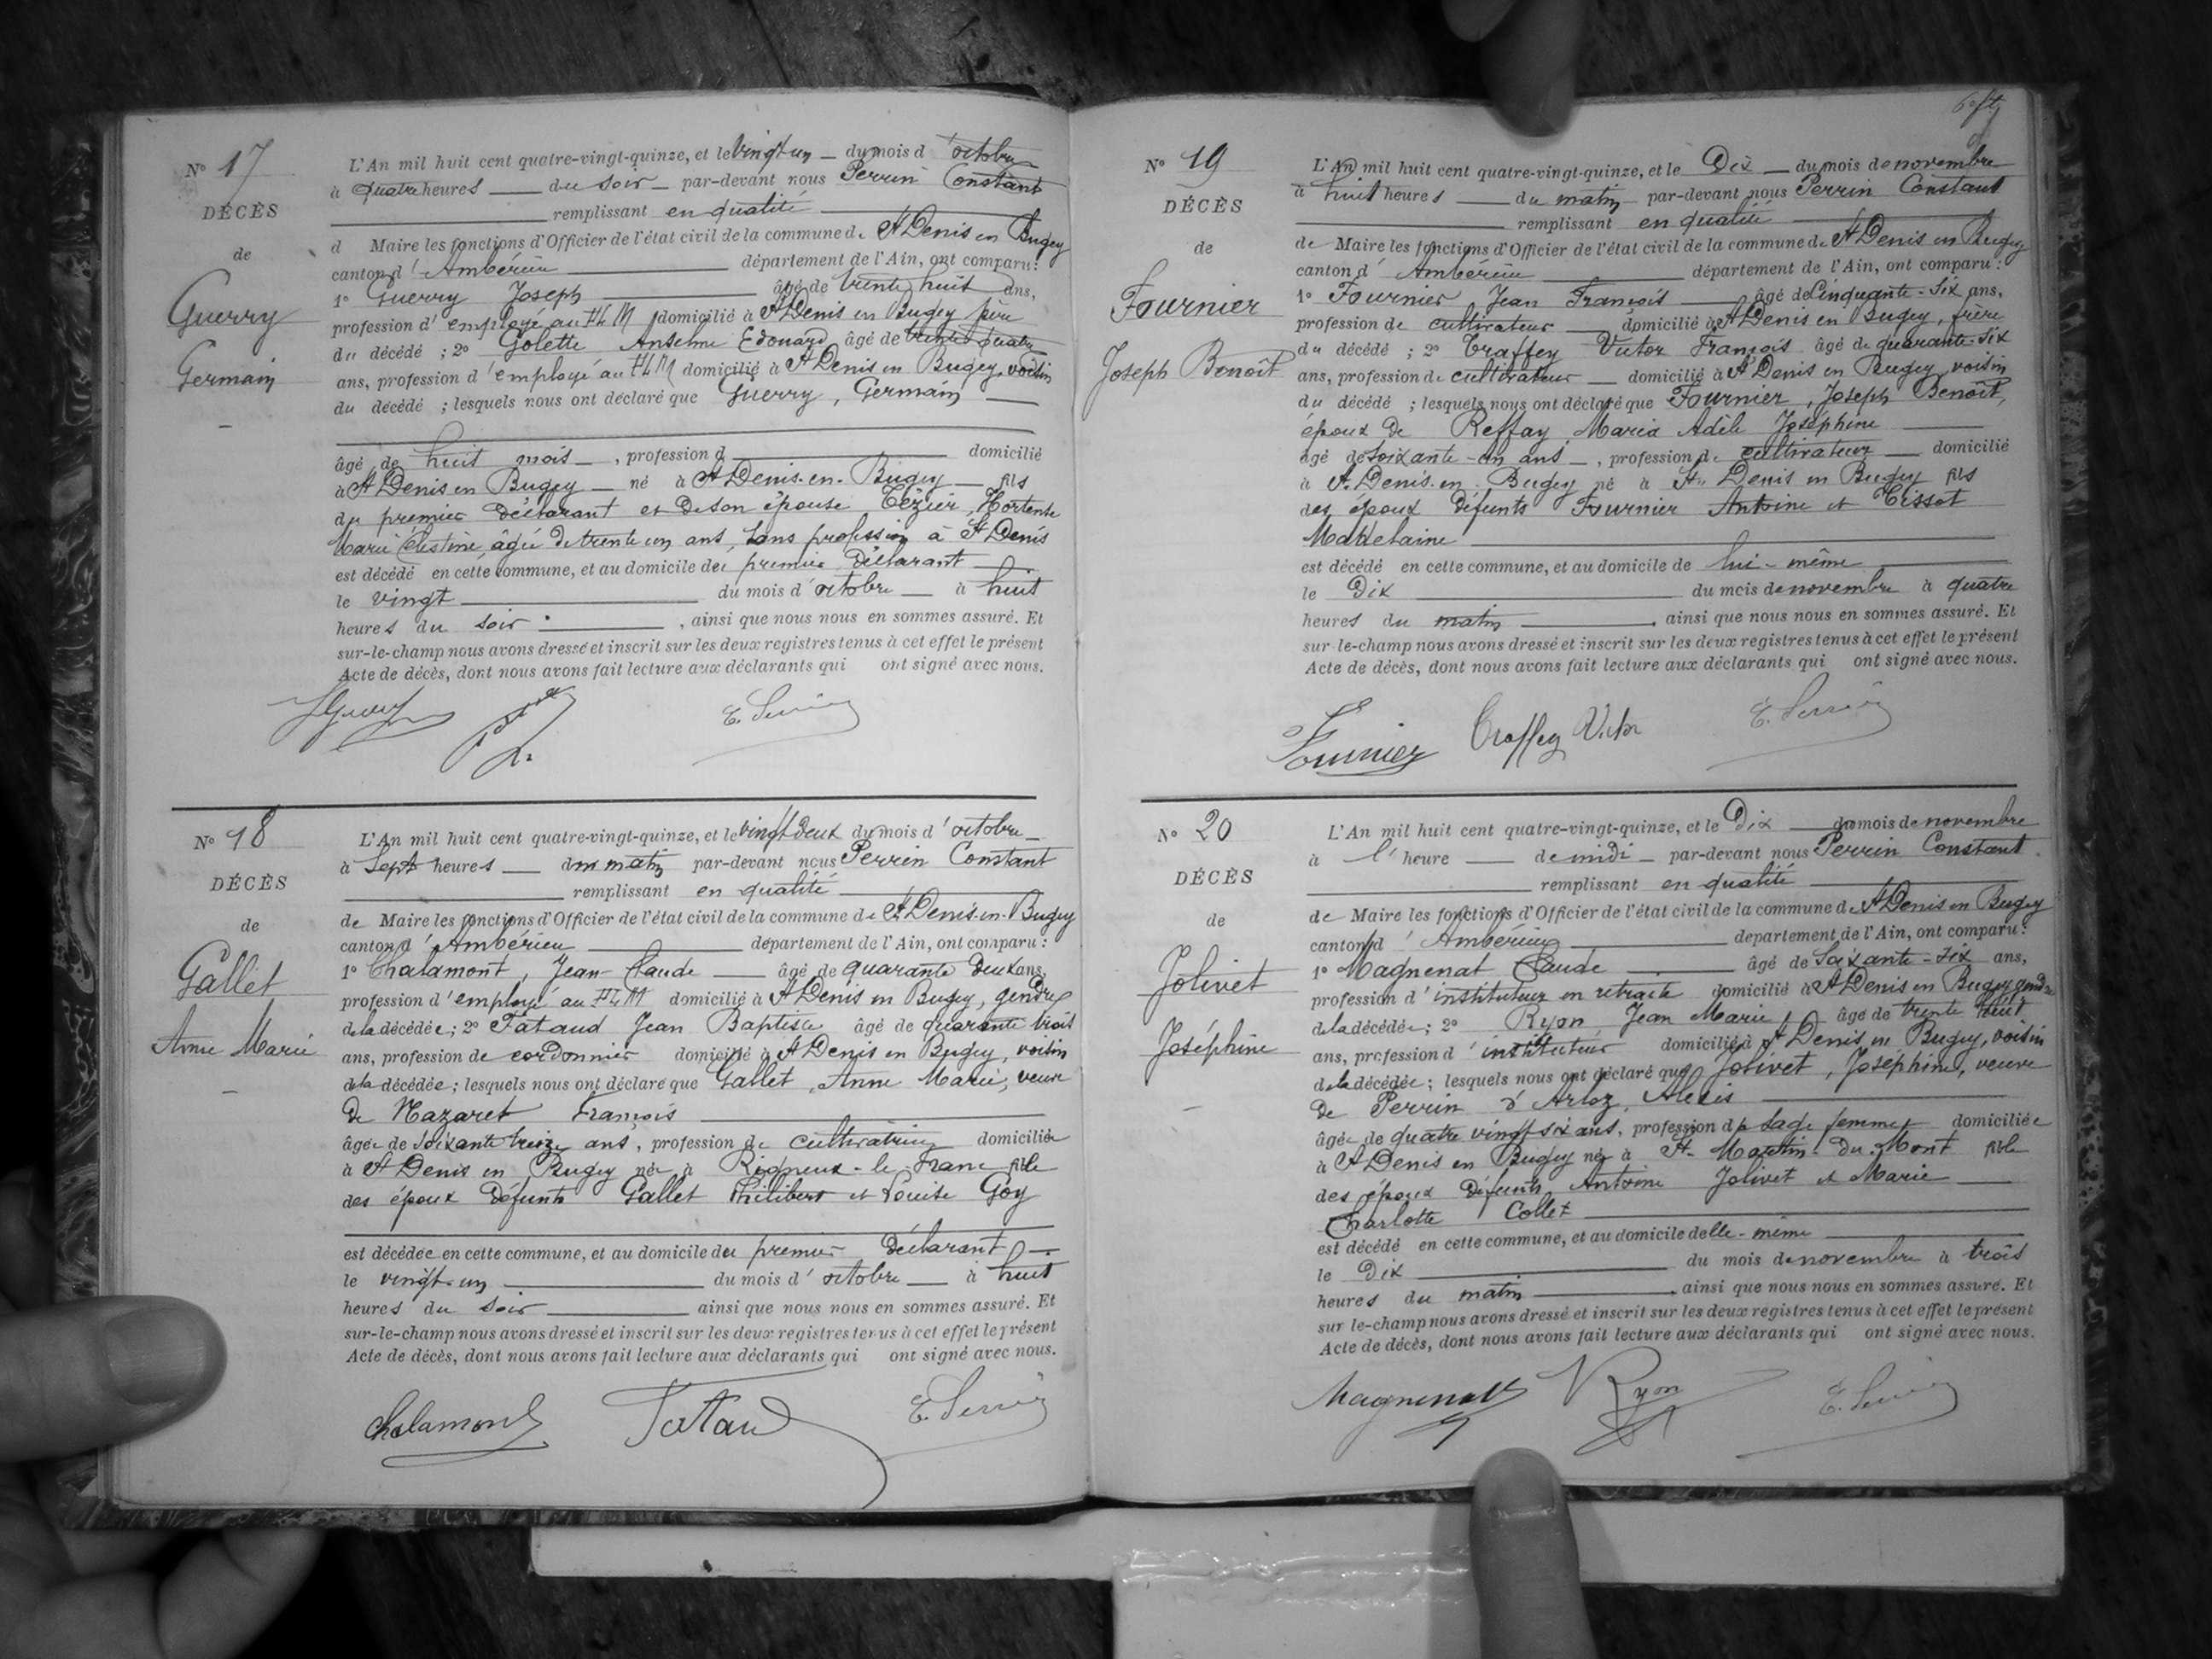 N° 17
DÉCÈS
de
Guerry
Germain
L'An mil huit cent quatre-vingt-quinze, et le vingt un du mois d'octobre
à quatre heures du soir par-devant nous Perrin Constant
remplissant en qualité
d Maire les fonctions d'Officier de l'état civil de la commune de St Denis en Bugey
canton d'Ambérieu département de l'Ain, ont comparu :
1° Guerry Joseph âgé de trente huit ans,
profession d'employé au PLM domicilié à St Denis en Bugey père
du décédé ; 2° Golette Anselme Edouard âgé de trente quatre
ans, profession d'employé au PLM domicilié à St Denis en Bugey, voisin
du décédé ; lesquels nous ont déclaré que Guerry, Germain
âgé de huit mois, profession d domicilié
à St Denis en Bugey né à St Denis-en-Bugey fils
du premier déclarant et de son épouse Tézier, Hortense
Marie Célestine, âgée de trente un ans, sans profession à St Denis
est décédé en cette commune, et au domicile du premier déclarant
le vingt du mois d'octobre à huit
heures du soir, ainsi que nous nous en sommes assuré. Et
sur-le-champ nous avons dressé et inscrit sur les deux registres tenus à cet effet le présent
Acte de décès, dont nous avons fait lecture aux déclarants qui ont signé avec nous.
JGuerry
N° 18
DÉCÈS
de
Gallet
Anne Marie
L'An mil huit cent quatre-vingt-quinze, et le vingt deux du mois d'octobre
à Sept heures du matin par-devant nous Perrin Constant
remplissant en qualité
de Maire les fonctions d'Officier de l'état civil de la commune de St Denis-en-Bugey
canton d'Ambérieu département de l'Ain, ont comparu :
1° Chalamont, Jean-Claude âgé de quarante deux ans,
profession d'employé au PLM domicilié à St Denis en Bugey, gendre
de la décédée ; 2° Tataud Jean Baptiste âgé de quarante trois
ans, profession de cordonnier domicilié à St Denis en Bugey, voisin
de la décédée ; lesquels nous ont déclaré que Gallet, Anne Marie, veuve
de Nazaret François
âgée de soixante treize ans, profession de cultivatrice domiciliée
à St Denis en Bugey née à Rigneux-le-Franc fille
des époux défunts Gallet Philibert et Louise Goy
est décédée en cette commune, et au domicile du premier déclarant
le vingt-un du mois d'octobre à huit
heures du soir ainsi que nous nous en sommes assuré. Et
sur-le-champ nous avons dressé et inscrit sur les deux registres tenus à cet effet le présent
Acte de décès, dont nous avons fait lecture aux déclarants qui ont signé avec nous.
Chalamont Tataud
N° 19
DÉCÈS
de
Fournier
Joseph Benoît
L'An mil huit cent quatre-vingt-quinze, et le Dix du mois de novembre
à huit heures du matin par-devant nous Perrin Constant
remplissant en qualité
de Maire les fonctions d'Officier de l'état civil de la commune de St Denis en Bugey
canton d'Ambérieu département de l'Ain, ont comparu :
1° Fournier Jean François âgé de Cinquante-Six ans,
profession de cultivateur domicilié à St Denis en Bugey, frère
du décédé ; 2° Traffey Victor François âgé de quarante-six
ans, profession de cultivateur domicilié à St Denis en Bugey voisin
du décédé ; lesquels nous ont déclaré que Fournier, Joseph Benoît,
époux de Reffay Maria Adèle Joséphine
âgé de soixante-un ans, profession de cultivateur domicilié
à St Denis-en-Bugey né à St Denis en Bugey fils
des époux défunts Fournier Antoine et Tissot
Madelaine
est décédé en cette commune, et au domicile de lui-même
le Dix du mois de novembre à quatre
heures du matin, ainsi que nous nous en sommes assuré. Et
sur-le-champ nous avons dressé et inscrit sur les deux registres tenus à cet effet le présent
Acte de décès, dont nous avons fait lecture aux déclarants qui ont signé avec nous.
Fournier Traffey Victor
N° 20
DÉCÈS
de
Jolivet
Joséphine
L'An mil huit cent quatre-vingt-quinze, et le Dix du mois de novembre
à l'heure de midi par-devant nous Perrin Constant
remplissant en qualité
de Maire les fonctions d'Officier de l'état civil de la commune de St Denis en Bugey
canton d'Ambérieu département de l'Ain, ont comparu :
1° Magnenat Claude âgé de Soixante-six ans,
profession d'instituteur en retraite domicilié à St Denis en Bugey gendre
de la décédée ; 2° Ryon Jean Marie âgé de trente huit
ans, profession d'instituteur domicilié à St Denis en Bugey, voisin
de la décédée ; lesquels nous ont déclaré que Jolivet, Joséphine, veuve
de Perrin d'Arloz, Alexis
âgée de quatre vingt six ans, profession de sage femme domiciliée
à St Denis en Bugey née à St-Martin-du-Mont fille
des époux défunts Antoine Jolivet et Marie
Charlotte Collet
est décédé en cette commune, et au domicile d'elle-même
le Dix du mois de novembre à trois
heures du matin, ainsi que nous nous en sommes assuré. Et
sur le-champ nous avons dressé et inscrit sur les deux registres tenus à cet effet le présent
Acte de décès, dont nous avons fait lecture aux déclarants qui ont signé avec nous.
Magnenat Ryon